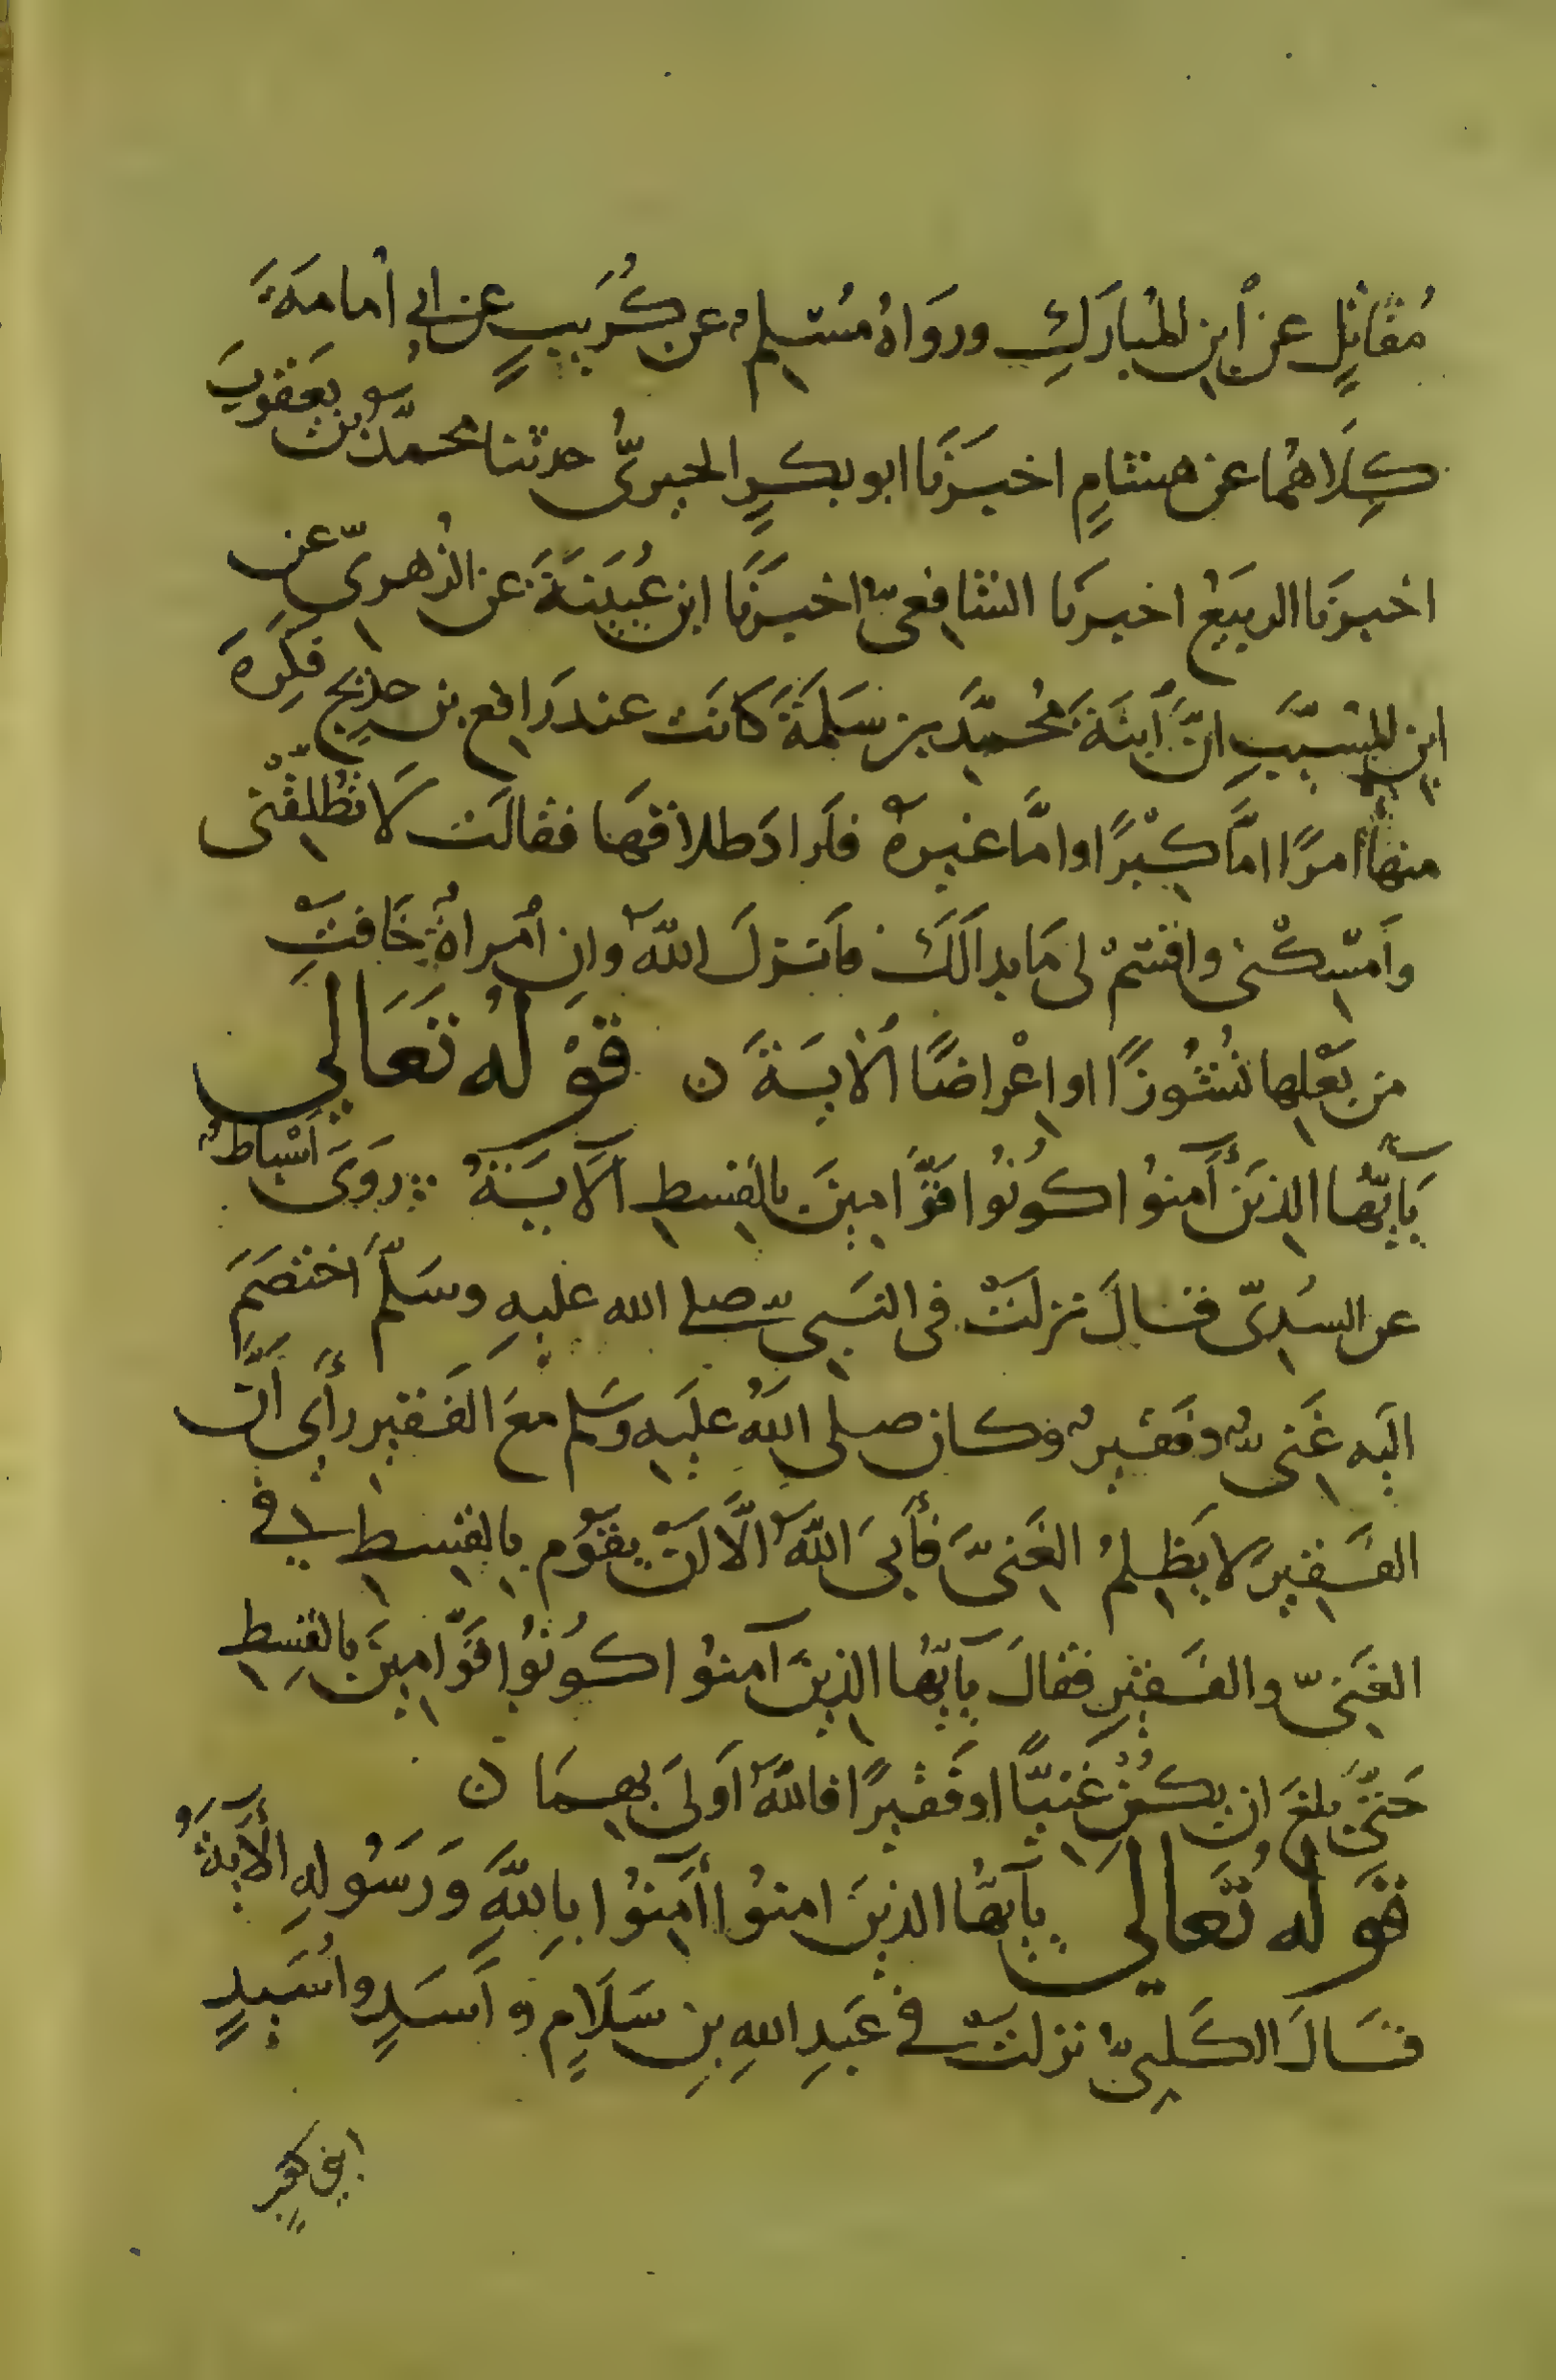 مُقَاتِلٍ عن ابنِ المُبَارَكِ ورَوَاهُ مُسْلِمٌ عن كُرَيبٍ عن ابي أُمامَةَ
كِلَاهُمَا عن هشامٍ اخبرَنَا ابو بكرٍ الحيريُّ حدثنا محمّدُ بن يَعقوبَ
اخبرَنَا الربيعُ اخبرنَا الشافِعىُّ اخبرَنَا ابن عُيَينَةَ عن الزُهرىِّ عن
ابنِ المُسَيَّبِ انَّ أبنَةَ مُحمَّدِ بن سَلَمَةَ كانَت عند رَافعِ بن خَدِيجٍ فكَرِهَ
منهَا أمرًا امَّا كِبْرًا واِمَّا غيرهُ فاَرادَ طلاقَها فقالَت لَا تُطَلِّقْنى
وأَمْسِكْنى واقْسِمْ لى مَا بدا لَكَ فاَنزلَ اللّهُ وانِ امْراةٌ خَافَتْ
من بَعْلِها نُشُوزًا او اِعْراضًا الايةَ ن قَوْلُهُ تَعَالى
يَأَيُّهَا الذِينَ آمنُوا كونُوا قَوَّامِينَ بالقِسطِ الآيَةُ ∴ رَوَىَ أَسْباطٌ
عن السُدِىّ قَالَ نزلَتْ فى النَبىِّ صلى الله عليهِ وسَلَّمَ اَختصَمَ
اليَهِ غَنىٌّ وفَقيرٌ وكان صلى اللهُ عليَهِ وسَلم معَ الفَقيرِ رأَى أَنَّ
الفَقيرَ لا يَظلِمُ الغَنىَّ فأَبىَ اللّهُ الَّا اَنْ يقُوم بالقِسطِ فى
الغَنىِّ والفَقيرِ فقالَ يأيّها الذِينَ آمنوُا كونُوا قَوَّامِينَ بالقسِطِ
حَتَّى بلغَ ان يكُنْ غَنِيًّا اوفَقيرًا فاللّهُ اَولىَ بِهِمَا ن
قَولُهُ تَعَالَى يأَيهُّا الذينَ امنوُا أَمِنُوا بِاللّهِ وَرَسُولِهِ الآيةُ
قَالَ الكَلبِىُّ نزلَتْ في عَبدِ اللهِ بنِ سَلَامٍ و أَسَدٍ وأُسَيدٍ
ابنى كعبٍ